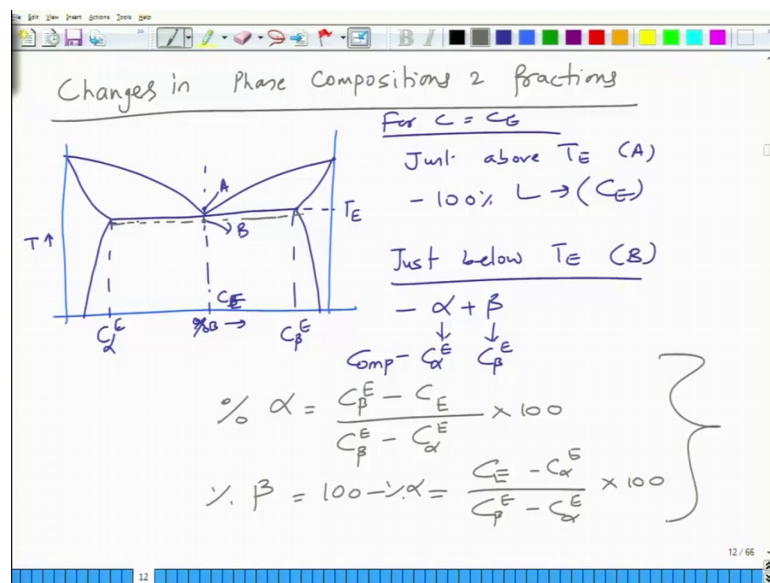 File Edit View Insert Actions Tools Help
Changes in Phase Compositions & fractions
For C = C_E
Just above T_E (A)
- 100% L → (C_E)
A
T_E
B
T ↑
Just below T_E (B)
- α + β
↓ ↓
Comp - C_α^E C_β^E
C_E
C_α^E %B → C_β^E
% α = (C_β^E - C_E) / (C_β^E - C_α^E) × 100
%. β = 100 - %α = (C_E - C_α^E) / (C_β^E - C_α^E) × 100
12 / 66
12